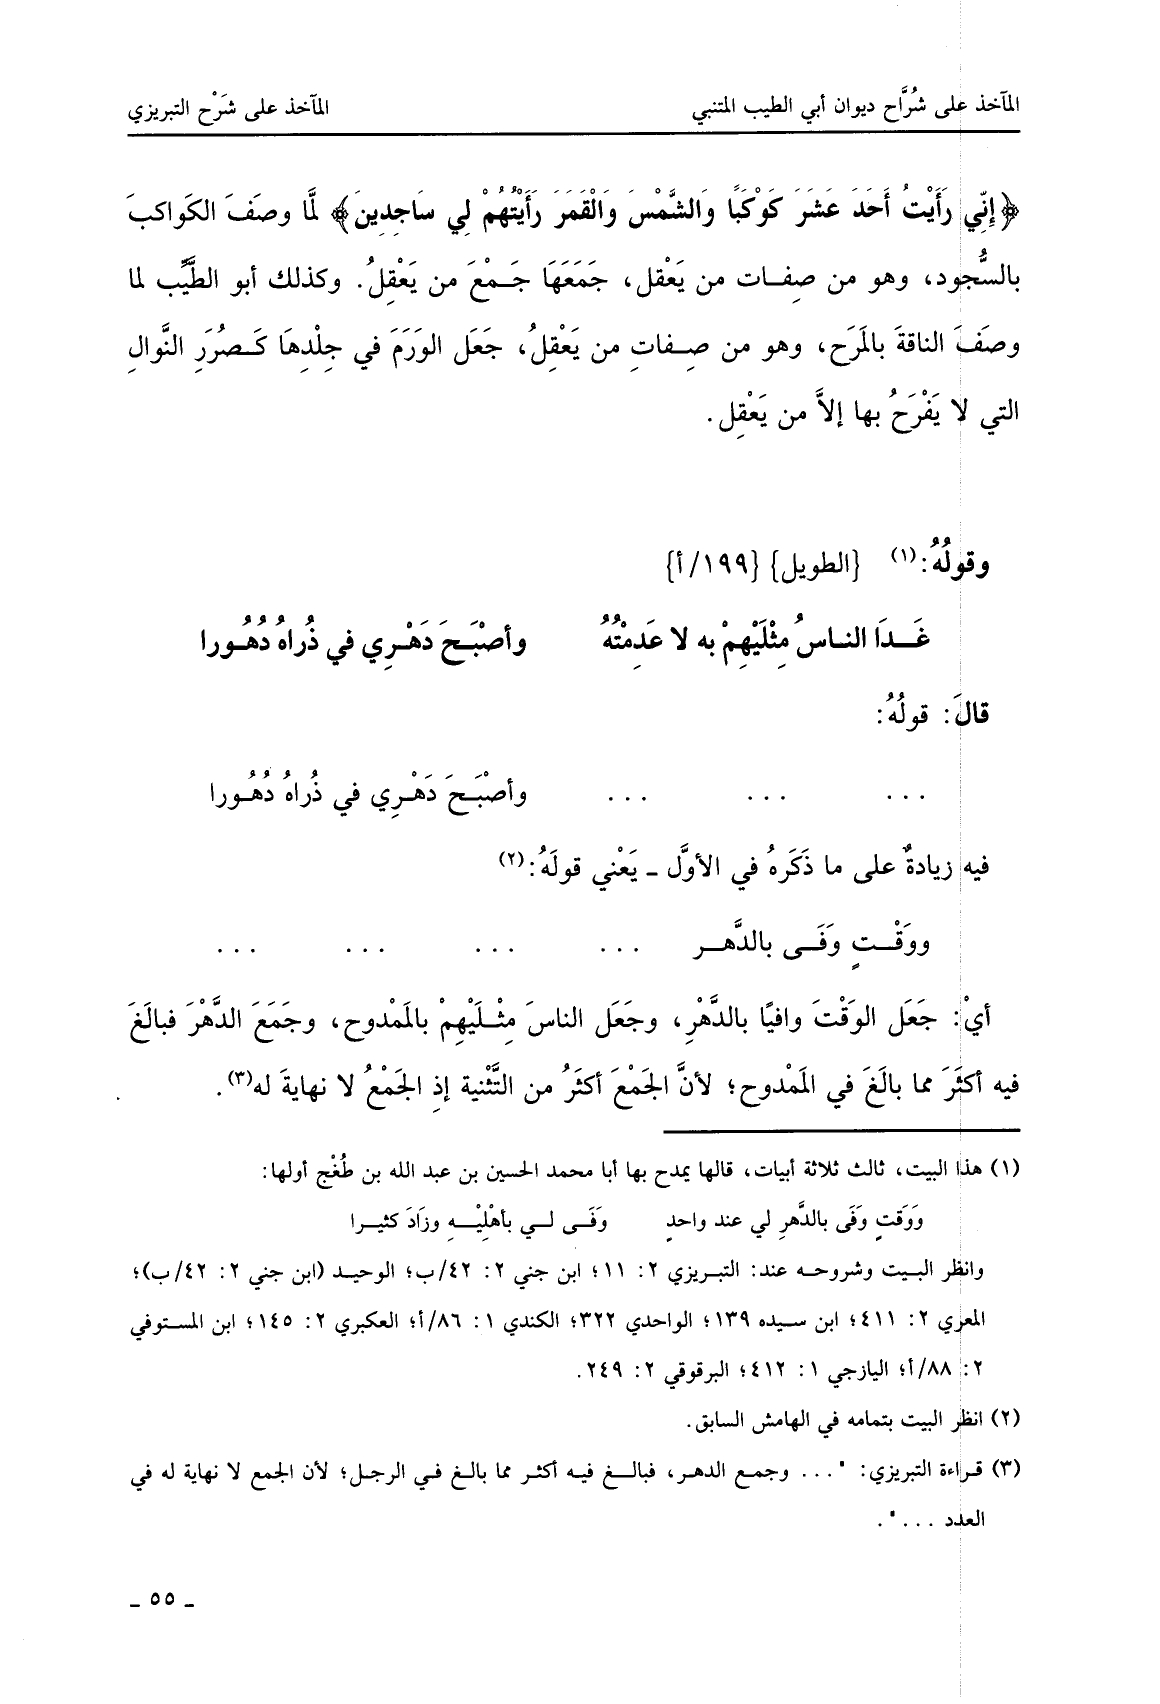 المآخذ على شُرَّاح ديوان أبي الطيب المتنبي المآخذ على شَرْح التبريزي
﴿إِنِّي رَأَيْتُ أَحَدَ عَشَرَ كَوْكَبًا وَالشَّمْسَ وَالْقَمَرَ رَأَيْتُهُمْ لِي سَاجِدِينَ﴾ لَمَّا وصَفَ الكَواكبَ
بالسُّجود، وهو من صِفات من يَعْقل، جَمَعَهَا جَمْعَ من يَعْقِلُ. وكذلك أبو الطَّيِّب لما
وصَفَ الناقةَ بالمَرَح، وهو من صِفاتِ من يَعْقِلُ، جَعَل الوَرَمَ في جِلْدِهَا كَصُرَرِ النَّوالِ
التي لا يَفْرَحُ بها إلاَّ من يَعْقِل.
وقولُهُ:(١) {الطويل} {١٩٩/أ}
غَدَا الناسُ مِثْلَيْهِمْ به لا عَدِمْتُهُ وأصْبَحَ دَهْرِي في ذُراهُ دُهُورا
قالَ: قولُهُ:
... ... ... وأصْبَحَ دَهْرِي في ذُراهُ دُهُورا
فيه زيادةٌ على ما ذَكَرهُ في الأوَّل ـ يَعْني قولَهُ:(٢)
ووَقْتٍ وَفَى بالدَّهر ... ... ... ...
أيْ: جَعَل الوَقْتَ وافيًا بالدَّهْرِ، وجَعَل الناسَ مِثْلَيْهِمْ بالمَمْدوح، وجَمَعَ الدَّهْرَ فبالَغَ
فيه أكثَرَ مما بالَغَ في المَمْدوح؛ لأنَّ الجَمْعَ أكثَرُ من التَّثْنية إذِ الجَمْعُ لا نهايةَ له(٣).
(١) هذا البيت، ثالث ثلاثة أبيات، قالها يمدح بها أبا محمد الحسين بن عبد الله بن طُغْج أولها:
وَوَقتٍ وَفَى بالدَّهرِ لي عند واحدٍ وَفَى لي بأهْلِيْهِ وزَادَ كثيرا
وانظر البيت وشروحه عند: التبريزي ٢: ١١؛ ابن جني ٢: ٤٢/ب؛ الوحيد (ابن جني ٢: ٤٢/ب)؛
المعري ٢: ٤١١؛ ابن سيده ١٣٩؛ الواحدي ٣٢٢؛ الكندي ١: ٨٦/أ؛ العكبري ٢: ١٤٥؛ ابن المستوفي
٢: ٨٨/أ؛ اليازجي ١: ٤١٢؛ البرقوقي ٢: ٢٤٩.
(٢) انظر البيت بتمامه في الهامش السابق.
(٣) قراءة التبريزي: "... وجمع الدهر، فبالغ فيه أكثر مما بالغ في الرجل؛ لأن الجمع لا نهاية له في
العدد ...".
ـ ٥٥ ـ